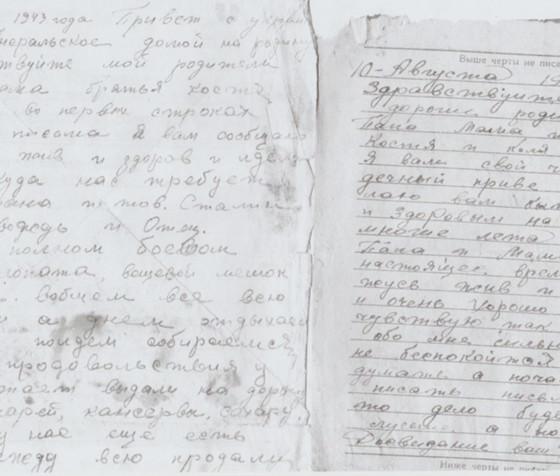 1943 года Привет с
домой на родину
мои родители
братья Костя
во первых строках
письма я вам сообщаю
жив и здоров и
куда нас требует
и тов. Сталин
вождь и Отец.
полном боевом
лопата, вещевой мешок
вобщем все всю
а днем отдыхаем
пойдем собираемся
продовольствия у
выдали на дорогу
сухарей, консервы, сахару
у нас еще есть
одежду всю продали
Выше черты не писа
10-Августа 19
Здравствуйте
дорогие роди
Папа Мама
Костя и Коля
Я вам свой
дечный приве
лаю вам быть
и здоровым на
многие лета
Папа и Мама
настоящее врем
жив и
и очень хорошо
чувствую так
обо мне сильно
не беспокойтесь
думайте а
писать письм
то дело буде
а но
Досвидание ваш
Ниже черты не пис